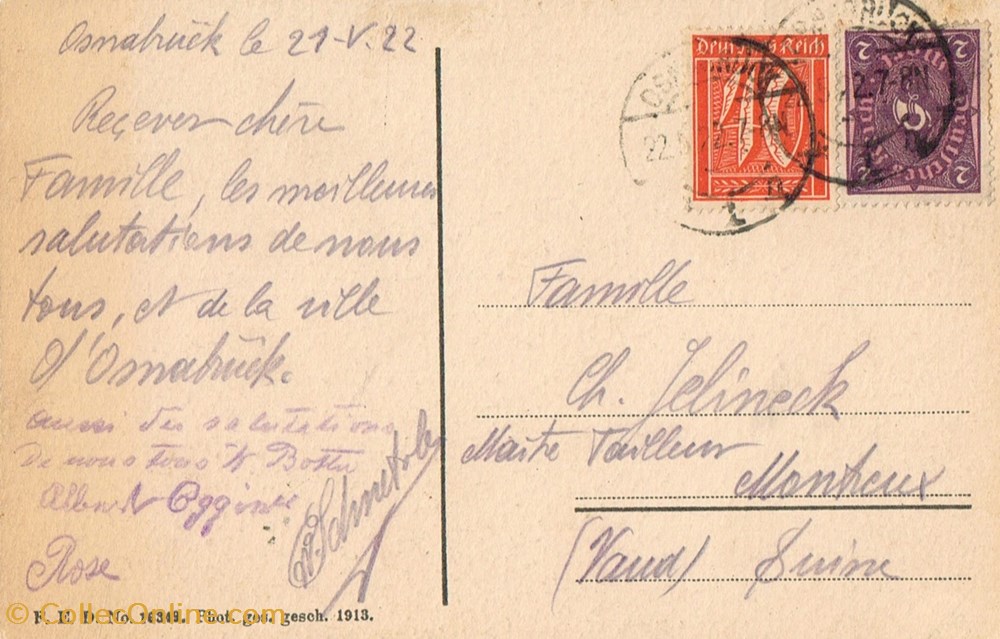 Osnabrück le 21-V.22
Reçever chère
Famille, les meilleures
salutations de nous
tous, et de la ville
d'Osnabrück.
aussi des salutations
De nous tous
Albert
Rose
W. Schmetzler
Deutsches Reich
40
2
2
2
2
22.5.22.7-8N
2.7-8N
Famille
Ch. Jelineck
Maite Tailleur
Montreux
(Vaud) Suisse
F. E. D. No. 16369. Phot. ges. gesch. 1913.
© CollecOnline.com